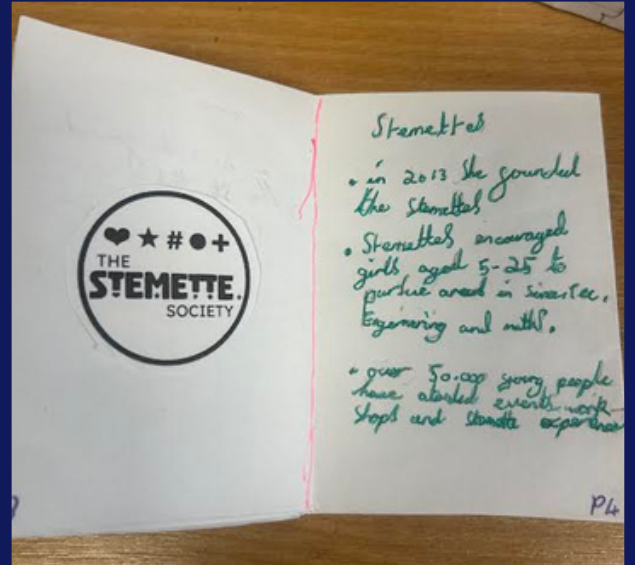 THE
STEMETTE.
SOCIETY
Stemettes
• in 2013 she founded
the Stemettes
• Stemettes encouraged
girls aged 5-25 to
pursue areas in
Engineering and maths.
• over 50.000 young people
have events work-
shops and Stemette experience
P4